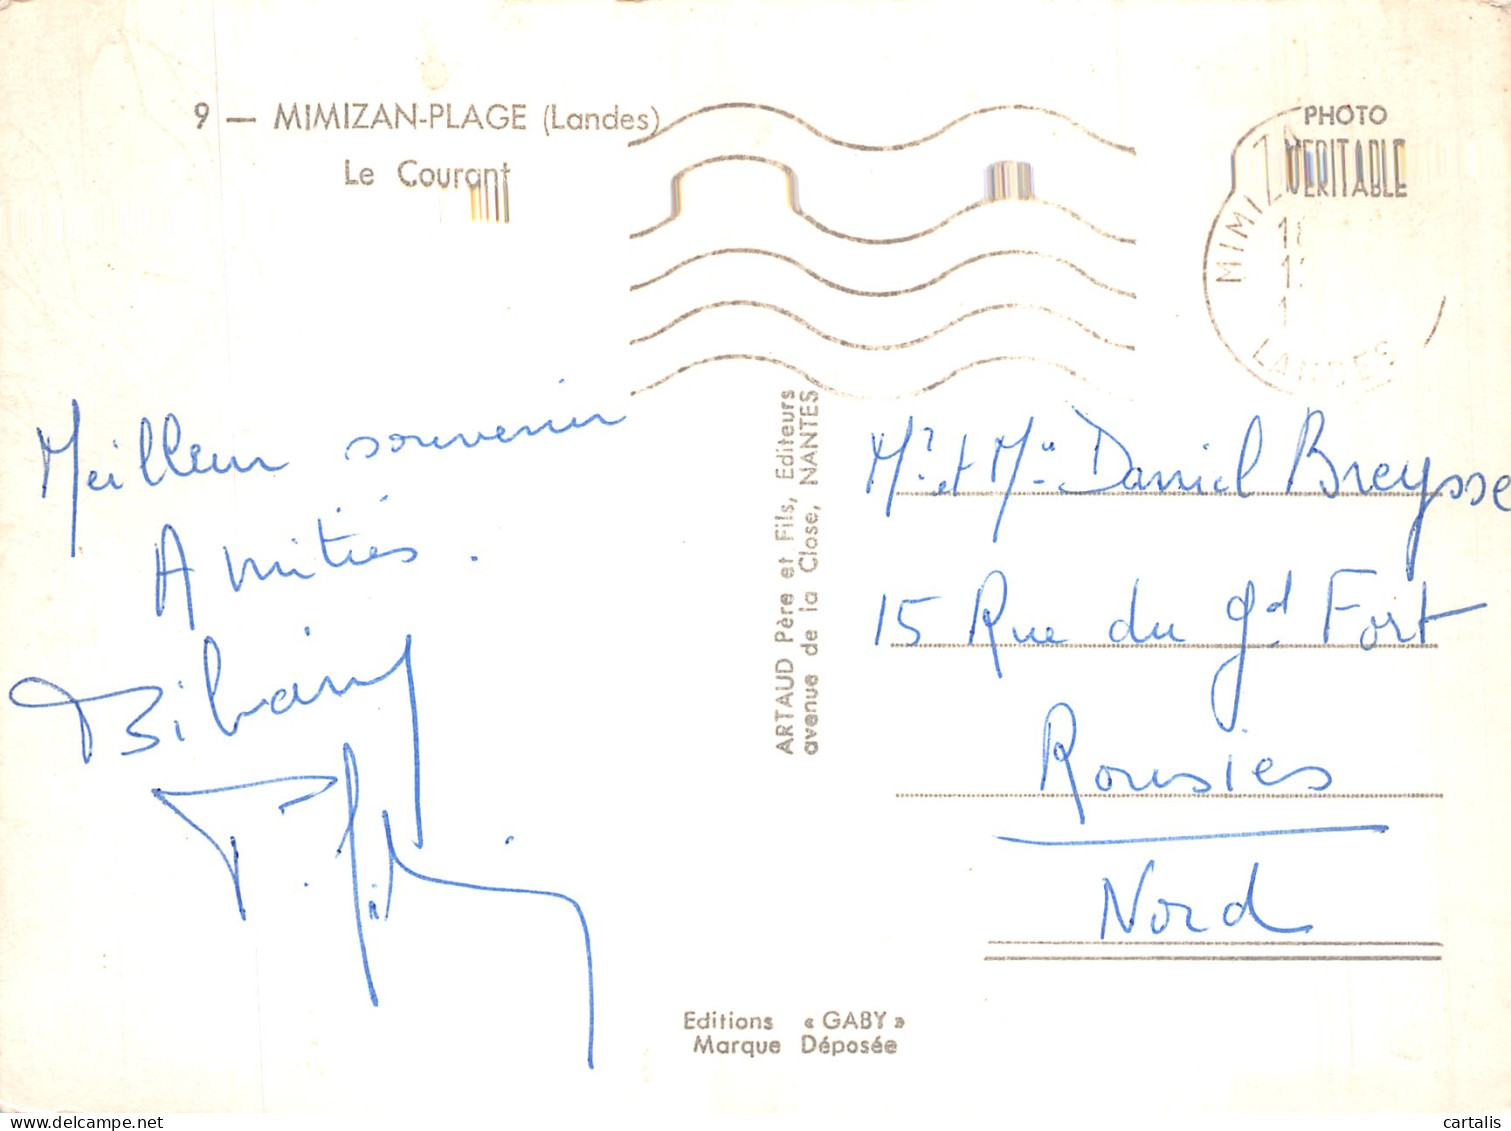 9 — MIMIZAN-PLAGE (Landes)
Le Courant
PHOTO
VERITABLE
MIMIZA
LANDES
Meilleur souvenir
Amitiés.
ARTAUD Père et Fils, Editeurs
avenue de la Close, NANTES
Mr et Me Daniel Breysse
15 Rue du gd Fort
Rousies
Nord
Editions « GABY »
Marque Déposée
cartalis